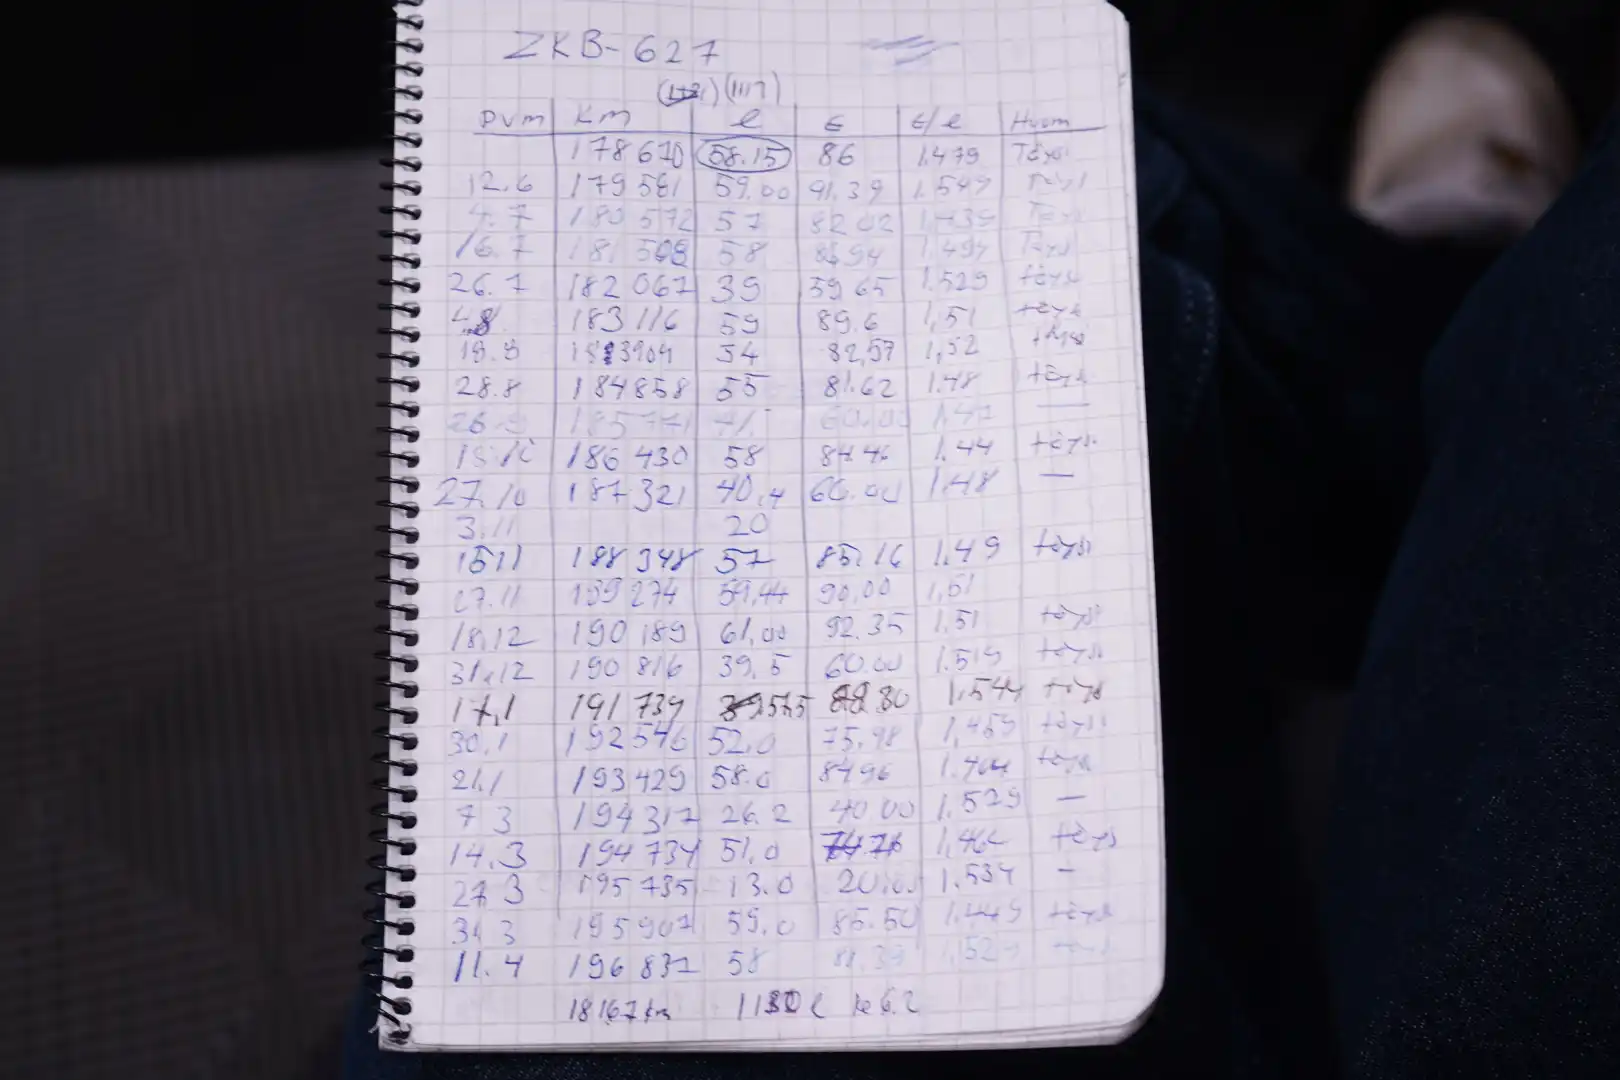 ZKB-627
(1117)
pvm Km l € €/l Huom
178670 58.15 86 1.479 Täysi
12.6 179581 59.00 91.39 1.549 Täysi
4.7 180572 57 82.02 1.439 Täysi
16.7 181508 58 86.94 1.499 Täysi
26.7 182067 39 59.65 1.529 täysi
4.8 183116 59 89.6 1,51 täysi
183904 54 82,57 1,52 täysi
28.8 184858 55 81.62 1.48 täysi
185771 41. 60.00 1.47 —
186430 58 84.46 1.44 täysi
27.10 187321 40,4 60.00 1.48 —
3.11 20
15.11 188348 57 85,16 1.49 täysi
27.11 189274 59,44 90.00 1,51
18.12 190189 61,00 92.35 1.51 täysi
31.12 190816 39,5 60.00 1.519 täysi
17.1 191739 57.5 88.80 1.544 täysi
30.1 192546 52.0 75.98 1,459 täysi
21.1 193429 58.0 84.96 1.464 täysi
7.3 194317 26.2 40.00 1.529 —
14.3 194734 51,0 74.76 1,464 täysi
27.3 195735 13.0 20.00 1.534 —
31.3 195907 59,0 85.50 1.449 täysi
11.4 196837 58 88.39 1.524 täysi
18167km 1130 l 6.2